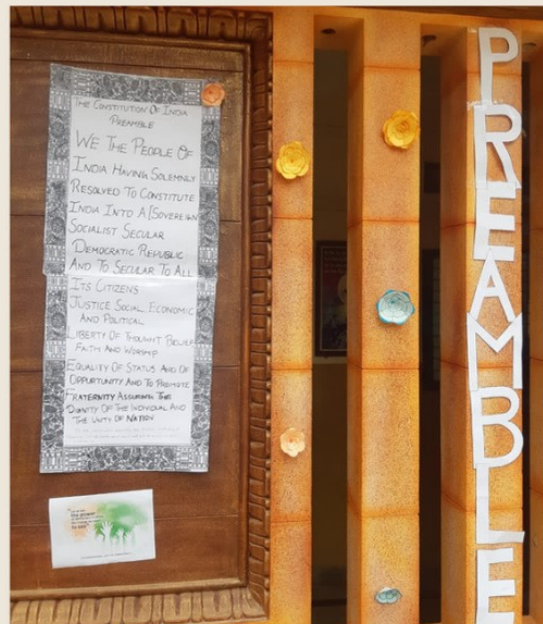 THE CONSTITUTION OF INDIA
PREAMBLE
WE THE PEOPLE OF
INDIA HAVING SOLEMNLY
RESOLVED TO CONSTITUTE
INDIA INTO A [SOVEREIGN
SOCIALIST SECULAR
DEMOCRATIC REPUBLIC
AND TO SECULAR TO ALL
ITS CITIZENS
JUSTICE SOCIAL ECONOMIC
AND POLITICAL
LIBERTY OF THOUGHT BELIEF
FAITH AND WORSHIP
EQUALITY OF STATUS AND OF
OPPURTUNITY AND TO PROMOTE
FRATERNITY ASSURING THE
DIGNITY OF THE INDIVIDUAL AND
THE UNITY OF NATION
the power
PREAMBLE